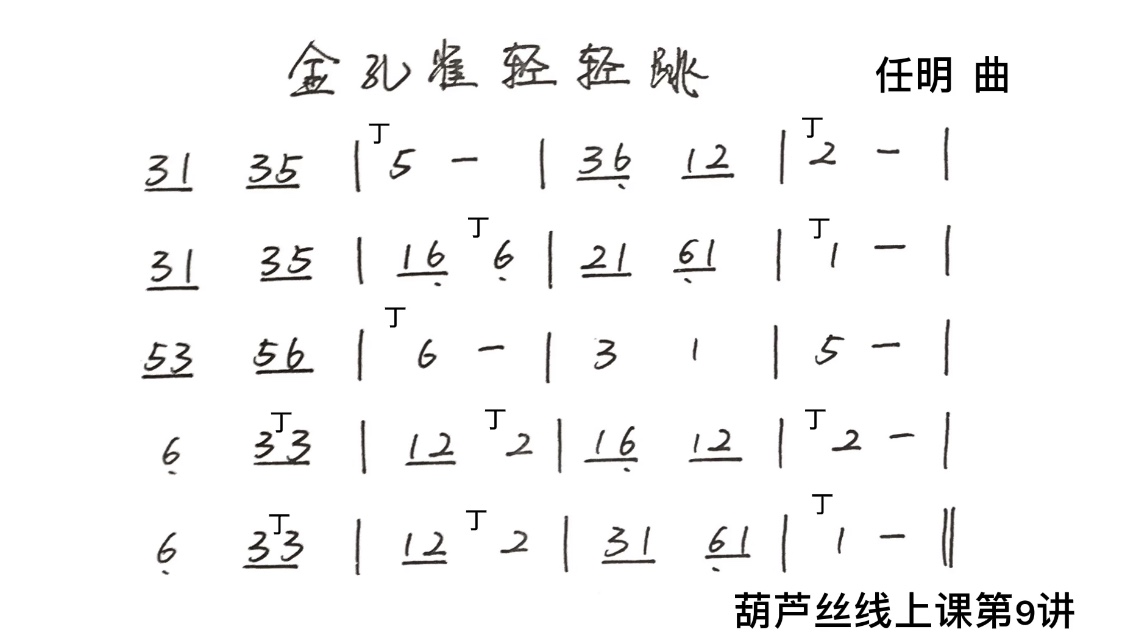 金孔雀轻轻跳 任明 曲
31 35 | 丁5 - | 36̣ 12 | 丁2 - |
31 35 | 16̣ 丁6̣ | 21 6̣1 | 丁1 - |
53 56 | 丁6 - | 3 1 | 5 - |
6̣ 3丁3 | 12 丁2 | 16̣ 12 | 丁2 - |
6̣ 3丁3 | 12 丁2 | 31 6̣1 | 丁1 - ‖
葫芦丝线上课第9讲